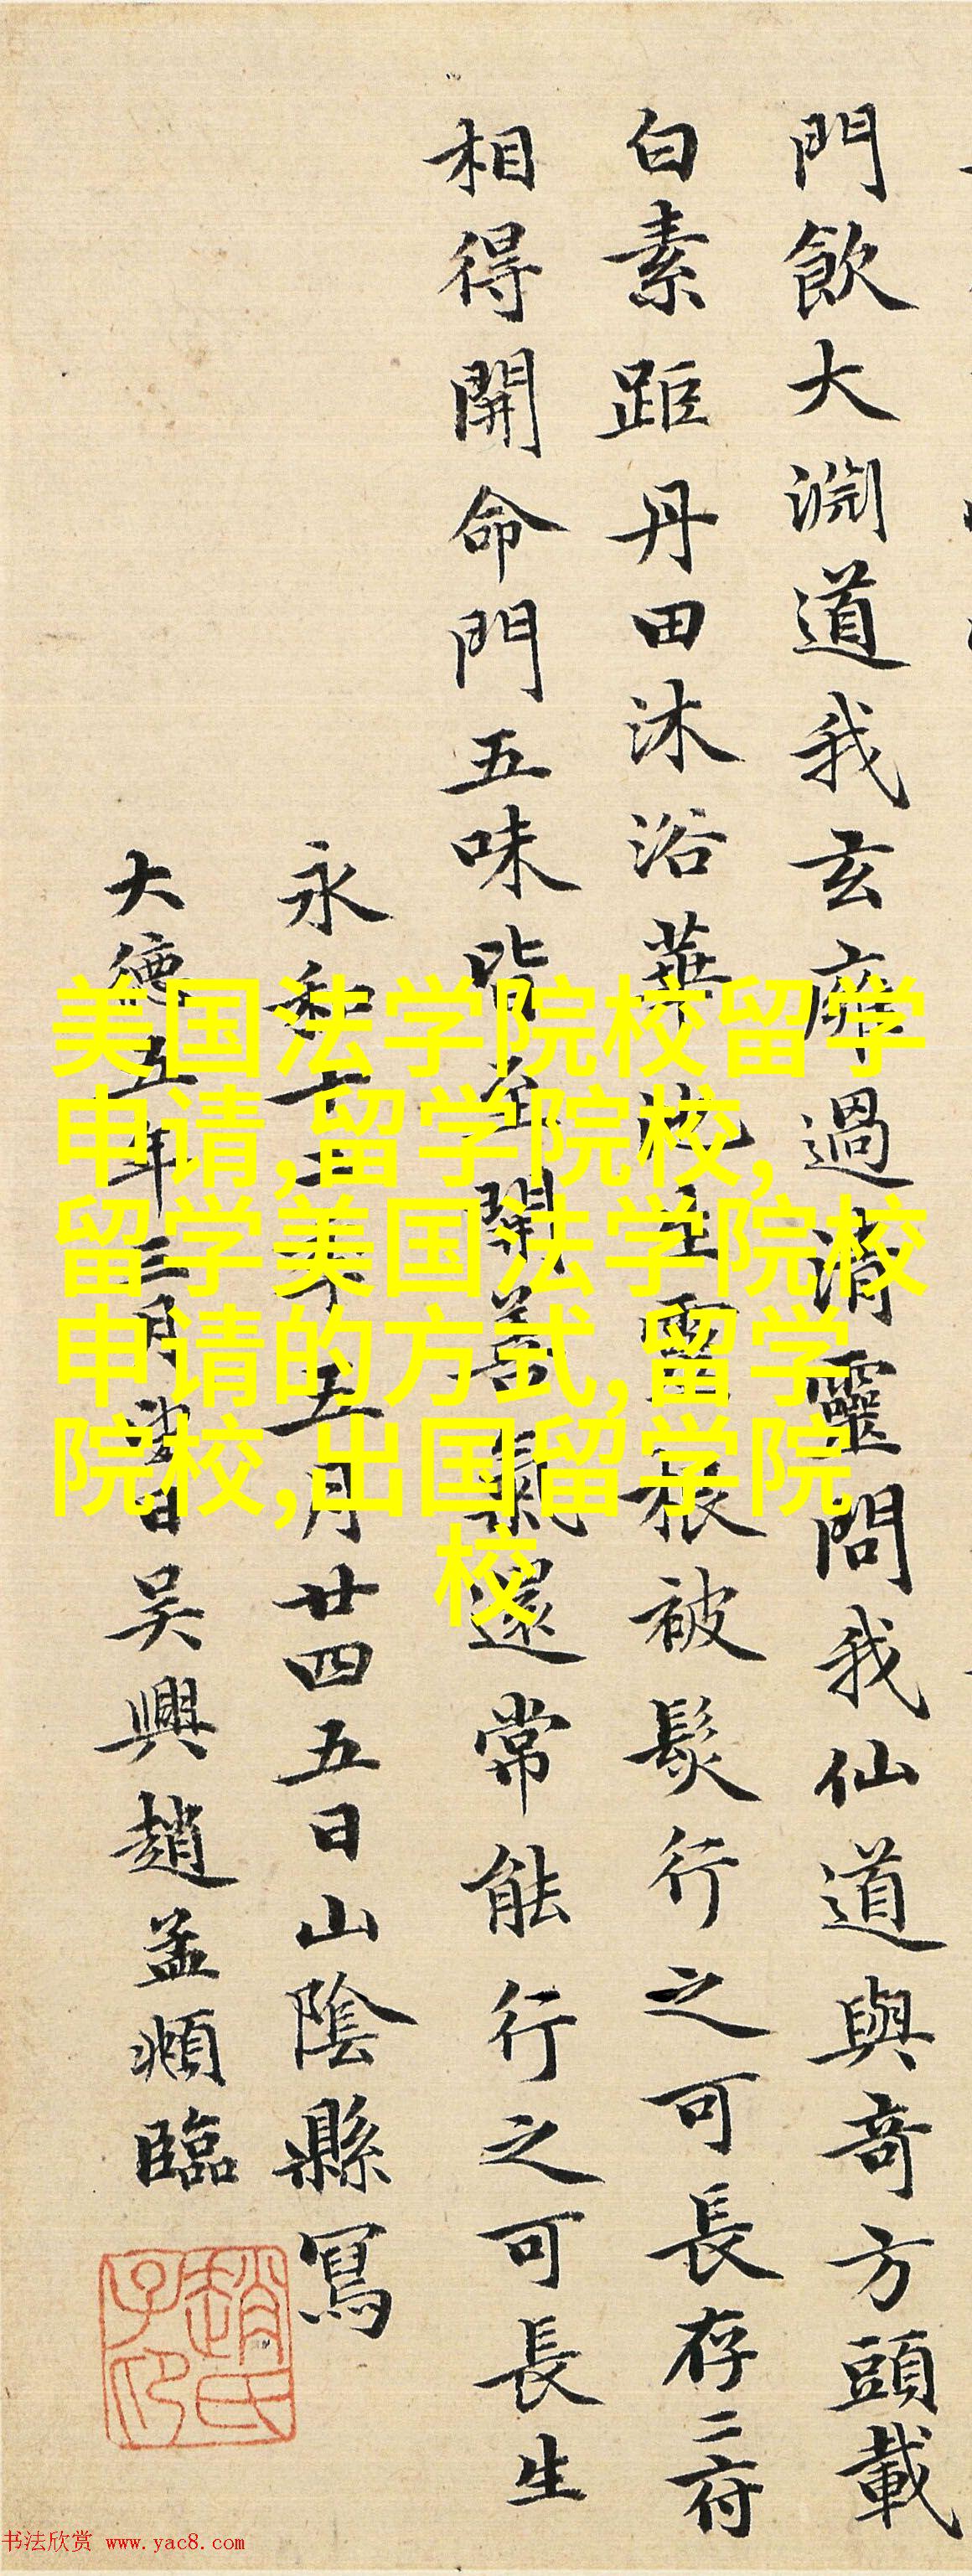 門飲大淵道我玄廱過清靈問我仙道與竒方頭載
白素距丹田沐浴華池生靈根被髮行之可長存二府
相得開命門五味皆至開善氣還常能行之可長生
永和十二年五月廿四五日山陰縣寫
大德五年三月望日吴興趙孟頫臨
趙氏子昂
美国法学院校留学
申请,留学院校,
留学美国法学院校
申请的方式,留学
院校,出国留学院
校
书法欣赏 www.yac8.com